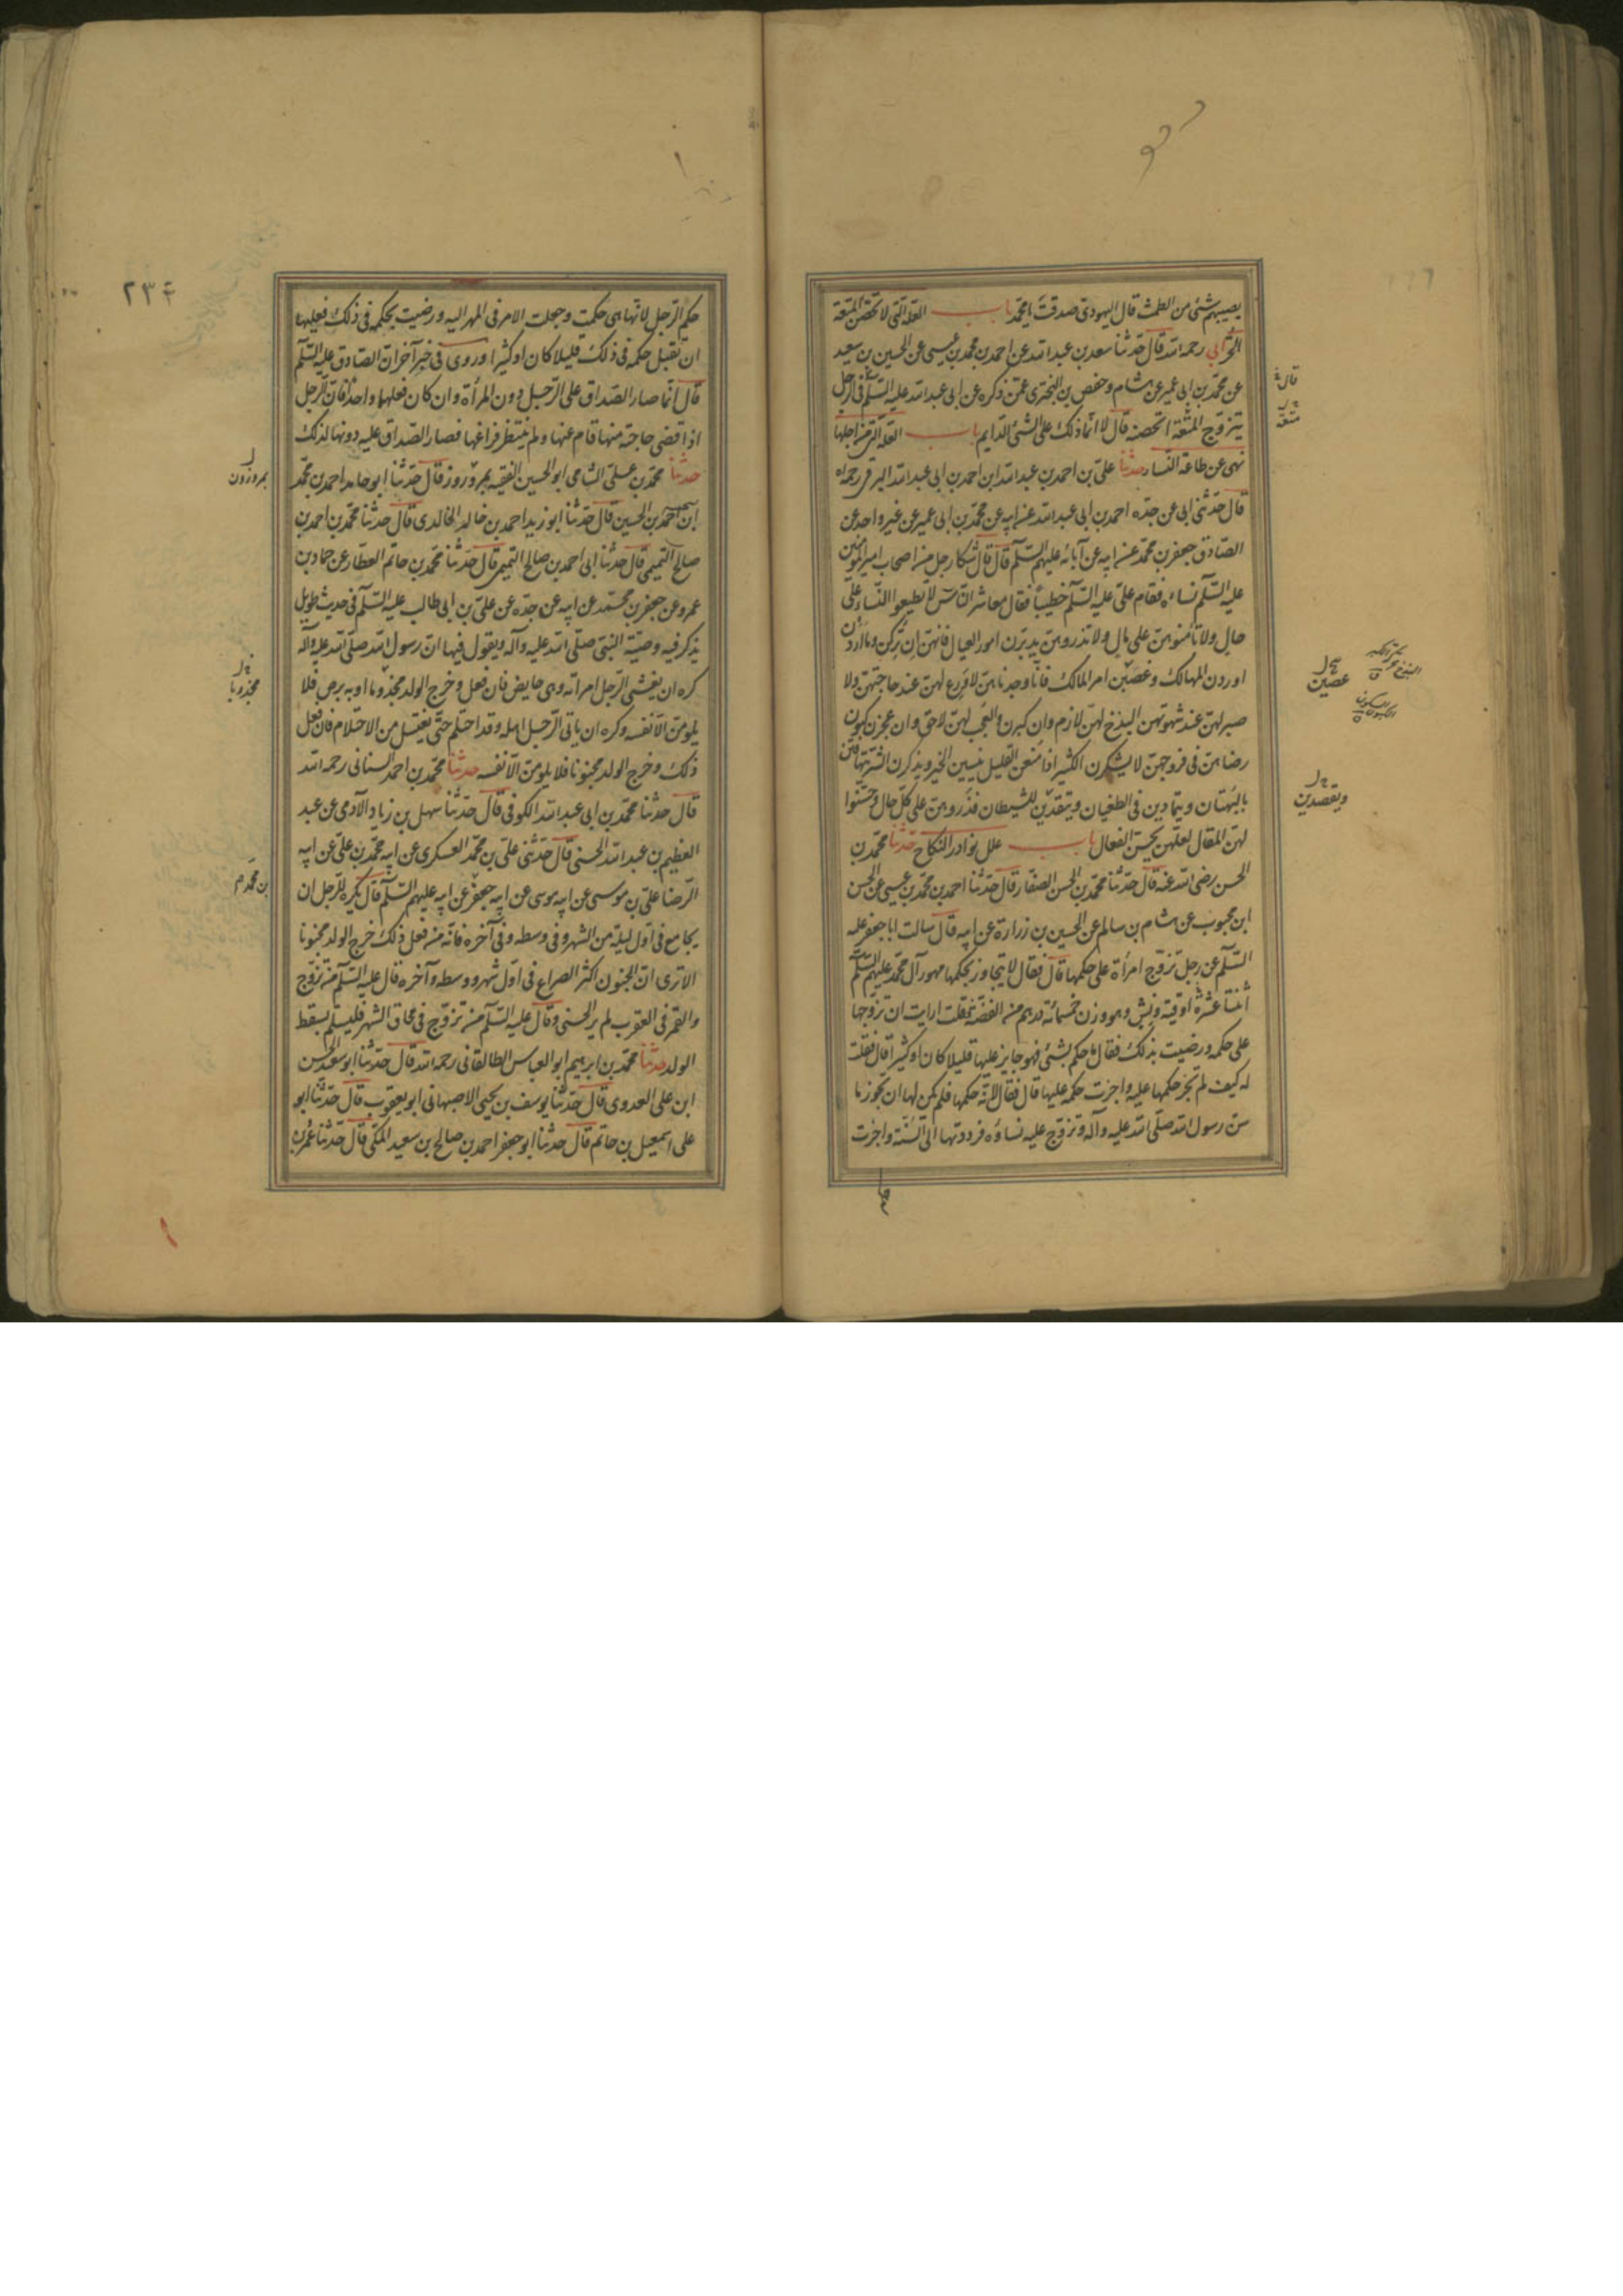 يصيبهم شئ من الطمث قال اليهودى صدقت يا محمد باب العلة التى لا تحصن المتعة
الحر ابى رحمه الله قال حدثنا سعد بن عبد الله عن احمد بن محمد بن عيسى عن الحسين بن سعيد
عن محمد بن ابى عمير عن هشام وحفص بن البخترى عمن ذكره عن ابى عبد الله عليه السلم فى الرجل
يتزوج المتعة اتحصنه قال لا انما ذلك على الشئ الدايم باب العلة التى من اجلها
نهى عن طاعة النساء حدثنا على بن احمد بن عبد الله ابن احمد بن ابى عبد الله البرقى رحمه الله
قال حدثنى ابى عن جده احمد بن ابى عبد الله عن ابيه عن محمد بن ابى عمير عن غير واحد عن
الصادق جعفر بن محمد عن ابيه عن آبائه عليهم السلم قال قال شكا رجل من اصحاب امير المؤمنين
عليه السلم نساءه فقام على عليه السلم خطيبا فقال معاشر الناس لا تطيعوا النساء على
حال ولا تأمنوهن على مال ولا تذروهن يدبرن امور العيال فانهن ان تركن وما اردن
اوردن المهالك وعصين امر المالك فانا وجدناهن لا ورع لهن عند حاجتهن ولا
صبر لهن عند شهوتهن البذخ لهن لازم وان كبرن والعجب لهن لاحق وان عجزن يكون
رضاهن فى فروجهن لا يشكرن الكثير اذا منعن القليل ينسين الخير ويذكرن الشر يتهافتن
بالبهتان ويتمادين فى الطغيان ويتصدين للشيطان فذروهن على كل حال وحسنوا
لهن المقال لعلهن يحسن الفعال باب علل نوادر النكاح حدثنا محمد بن
الحسن رضى الله عنه قال حدثنا محمد بن الحسن الصفار قال حدثنا احمد بن محمد بن عيسى عن الحسن
ابن محبوب عن هشام بن سالم عن الحسين بن زرارة عن ابيه قال سالت ابا جعفر عليه
السلم عن رجل تزوج امرأة على حكمها قال فقال لا يتجاوز بحكمها مهور آل محمد عليهم السلم
اثنتا عشرة اوقية ونش وهو وزن خمسمائة درهم من الفضة قلت ارايت ان تزوجها
على حكمه ورضيت بذلك فقال ما حكم بشئ فهو جايز عليها قليلا كان او كثيرا قال فقلت
له كيف لم تجز حكمها عليه واجزت حكمه عليها قال فقال لانه حكمها فلم يكن لها ان تجوز ما
سن رسول الله صلى الله عليه وآله وتزوج عليه نساؤه فرددتها الى السنة واجزت
قال
متعة
عصين
ويقصدين
٢٣٤
حكم الرجل لانها هى حكمت وجعلت الامر فى المهر اليه ورضيت بحكمه فى ذلك فعليها
ان تقبل حكمه فى ذلك قليلا كان او كثيرا وروى فى خبر آخر ان الصادق عليه السلم
قال انما صار الصداق على الرجل دون المرأة وان كان فعلهما واحدا فان الرجل
اذا قضى حاجته منها قام عنها ولم ينتظر فراغها فصار الصداق عليه دونها لذلك
حدثنا محمد بن على الشامى ابو الحسين الفقيه بمرو روز قال حدثنا ابو حامد احمد بن محمد
ابن احمد بن الحسين قال حدثنا ابو زيد احمد بن خالد الخالدى قال حدثنا محمد بن احمد بن
صالح التميمى قال حدثنا ابى احمد بن صالح التميمى قال حدثنا محمد بن حاتم العطار عن حماد بن
عمرو عن جعفر بن محمد عن ابيه عن جده عن على بن ابى طالب عليه السلم فى حديث طويل
يذكر فيه وصية النبى صلى الله عليه وآله ويقول فيها ان رسول الله صلى الله عليه وآله
كره ان يغشى الرجل امراته وهى حايض فان فعل وخرج الولد مجذوما او به برص فلا
يلومن الا نفسه وكره ان ياتى الرجل اهله وقد احتلم حتى يغتسل من الاحتلام فان فعل
ذلك وخرج الولد مجنونا فلا يلومن الا نفسه حدثنا محمد بن احمد السنانى رحمه الله
قال حدثنا محمد بن ابى عبد الله الكوفى قال حدثنا سهل بن زياد الآدمى عن عبد
العظيم بن عبد الله الحسنى قال حدثنى على بن محمد العسكرى عن ابيه محمد بن على عن ابيه
الرضا على بن موسى عن ابيه موسى عن ابيه جعفر عن ابيه عليهم السلم قال يكره للرجل ان
يجامع فى اول ليلة من الشهر وفى وسطه وفى آخره فانه من فعل ذلك خرج الولد مجنونا
الا ترى ان المجنون اكثر الصراع فى اول شهر ووسطه وآخره قال عليه السلم من تزوج
والقمر فى العقرب لم ير الحسنى وقال عليه السلم من تزوج فى محاق الشهر فليسلم لسقط
الولد حدثنا محمد بن ابرهيم ابو العباس الطالقانى رحمه الله قال حدثنا ابو سعيد الحسن
ابن على العدوى قال حدثنا يوسف بن يحيى الاصبهانى ابو يعقوب قال حدثنا ابو
على اسمعيل بن حاتم قال حدثنا ابو جعفر احمد بن صالح بن سعيد المكى قال حدثنا عمر بن
بمروزون
مجذوبا
بن محمد م